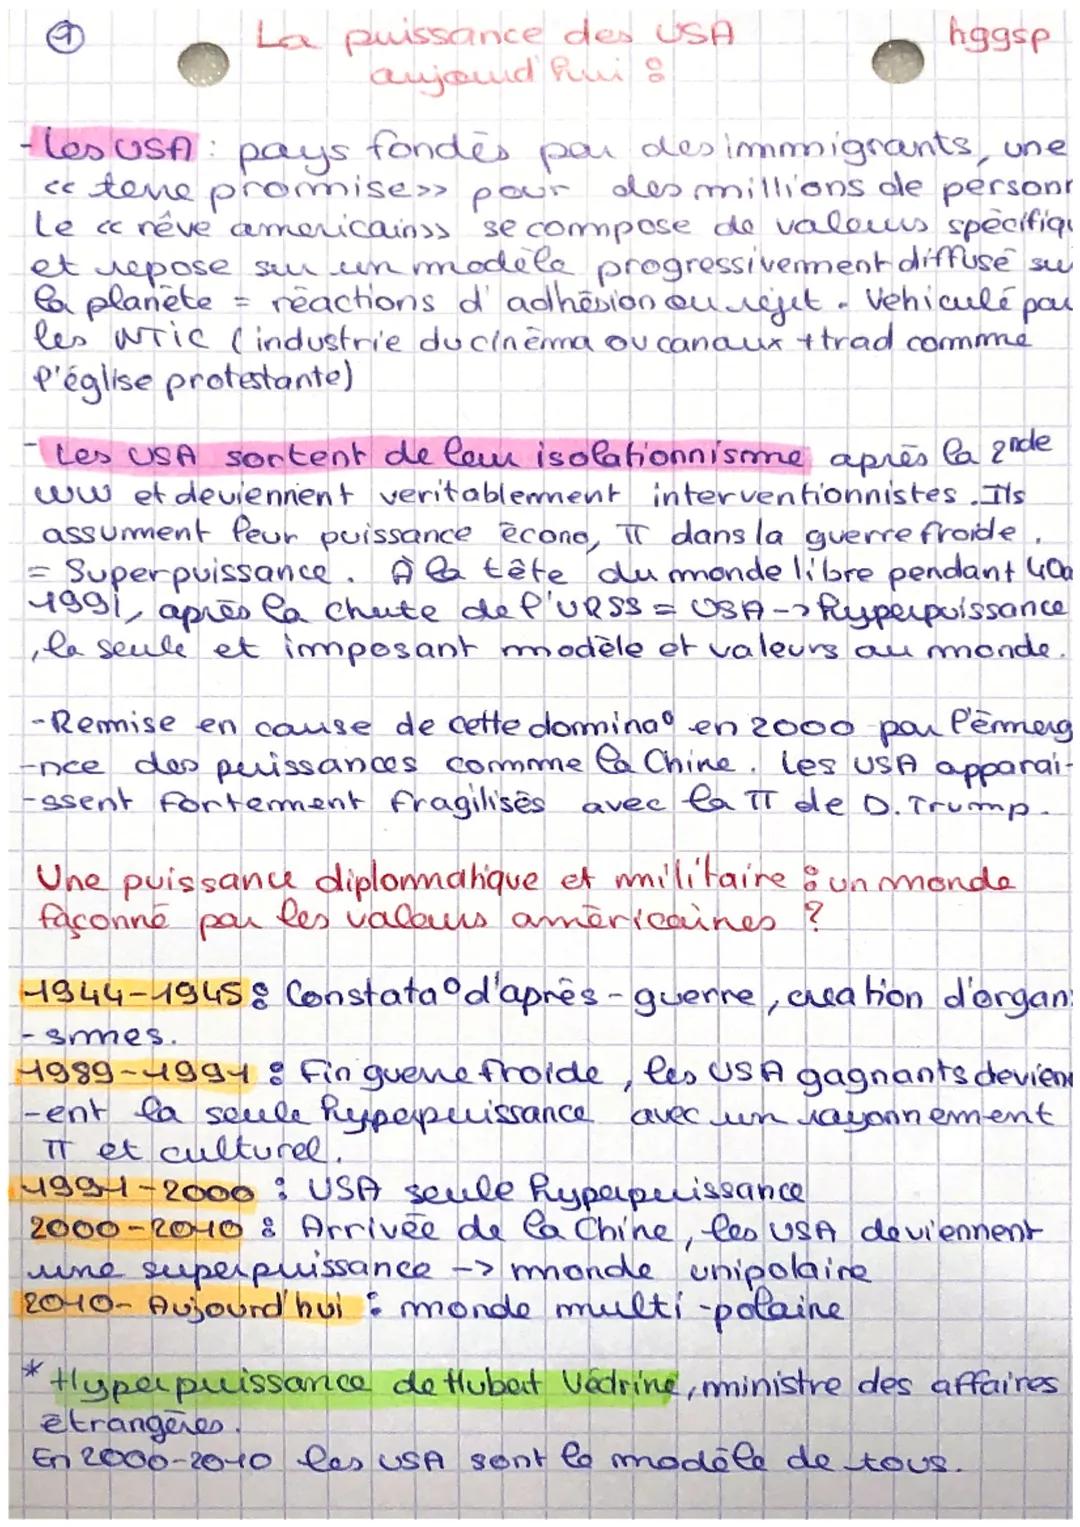 1
La puissance des USA
hggsp
aujourd'hui :
- Les USA : pays fondés par des immigrants, une
<< terre promise >> pour des millions de personn
Le << rêve americain >> se compose de valeurs spécifiqu
et repose sur un modèle progressivement diffusé sur
la planète = réactions d'adhésion ou rejet. Vehiculé par
les NTIC (industrie du cinéma ou canaux + trad comme
l'église protestante)
- Les USA sortent de leur isolationnisme après la 2nde
WW et deviennent veritablement interventionnistes. Ils
assument leur puissance écono, π dans la guerre froide.
= Superpuissance. À la tête du monde libre pendant 40a
1991, après la chute de l'URSS = USA -> hyperpuissance
, la seule et imposant modèle et valeurs au monde.
- Remise en cause de cette domina° en 2000 par l'émerg
-nce des puissances comme la Chine. Les USA apparai-
-ssent fortement fragilisés avec la π de D. Trump.
Une puissance diplomatique et militaire : un monde
façonné par les valeurs américaines ?
1944-1945 : Constata° d'après-guerre, creation d'organi
-smes.
1989-1991 : Fin guerre froide, les USA gagnants devienn
-ent la seule hyperpuissance avec un rayonnement
π et culturel.
1991-2000 : USA seule hyperpuissance
2000-2010 : Arrivée de la Chine, les USA deviennent
une superpuissance -> monde unipolaire
2010- Aujourd'hui : monde multi-polaire
* Hyperpuissance de Hubert Védrine, ministre des affaires
étrangères.
En 2000-2010 les USA sont le modèle de tous.